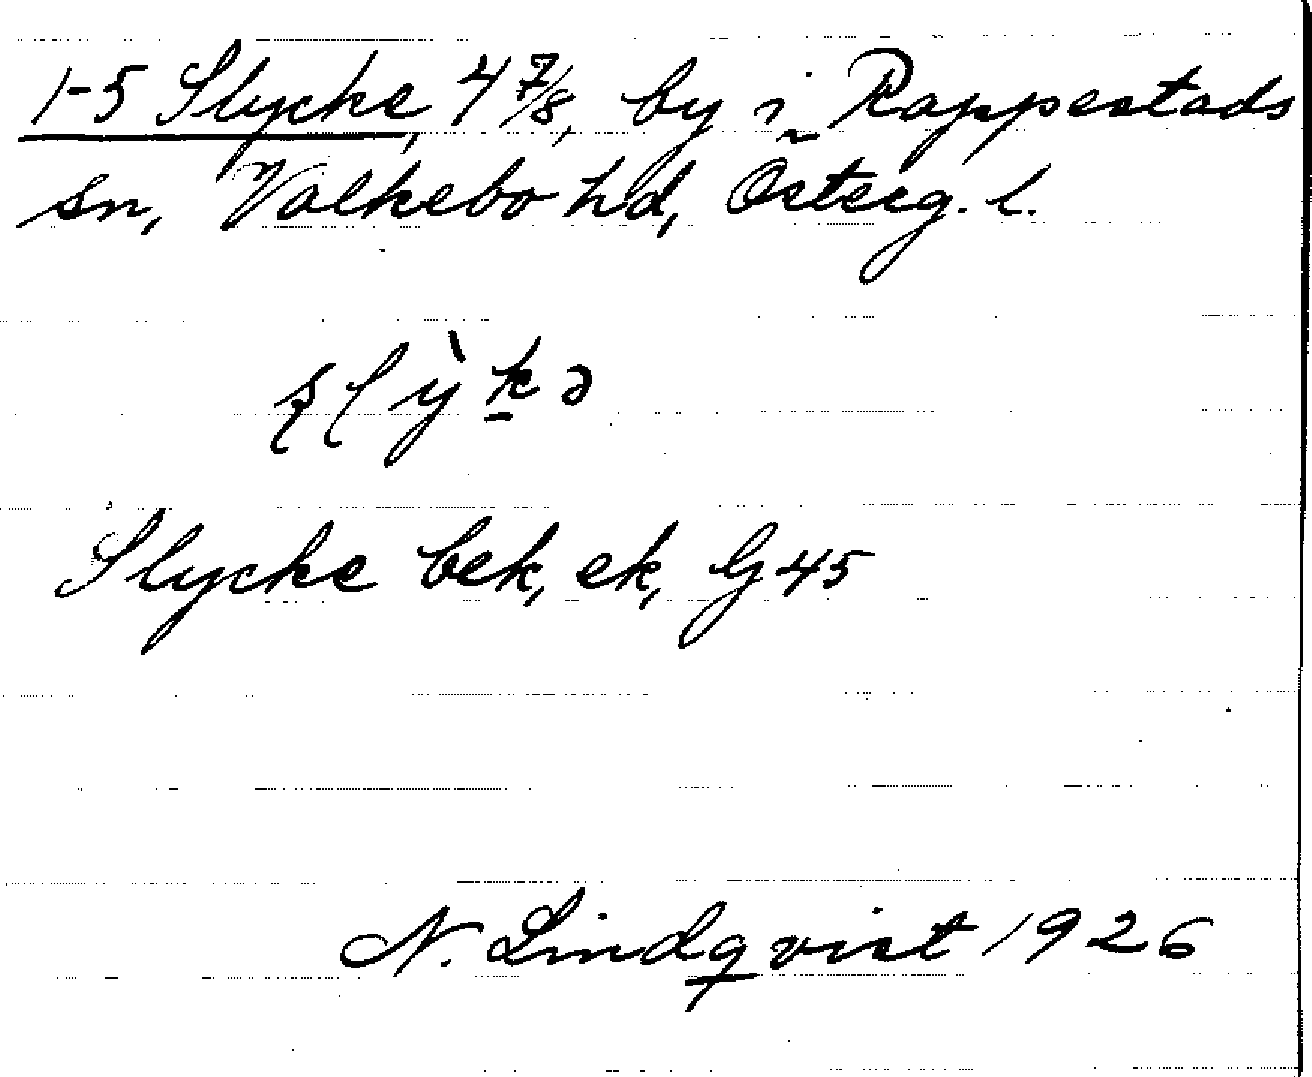 1-5 Slycke, 4 7/8, by i Rappestads
sn, Valkebo hd, Österg. l.
Slycke bek, ek, G 45
N. Lindqvist 1926